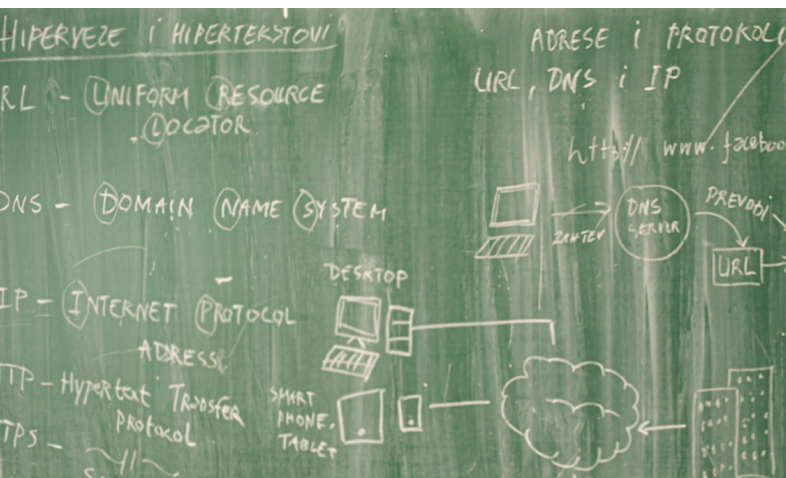 HIPERVEZE i HIPERTEKSTOVI
RL - UNIFORM RESOURCE
LOCATOR
DNS - DOMAIN NAME SYSTEM
IP - INTERNET PROTOCOL
ADRESS
TTP - Hypertext TRANSFER
PROTOKOL
TPS -
ADRESE i PROTOKOLI
URL, DNS i IP
http// www.faceboo
ZAHTEV
DNS
SERVER
PREVODI
URL
DESKTOP
SMART
PHONE,
TABLET